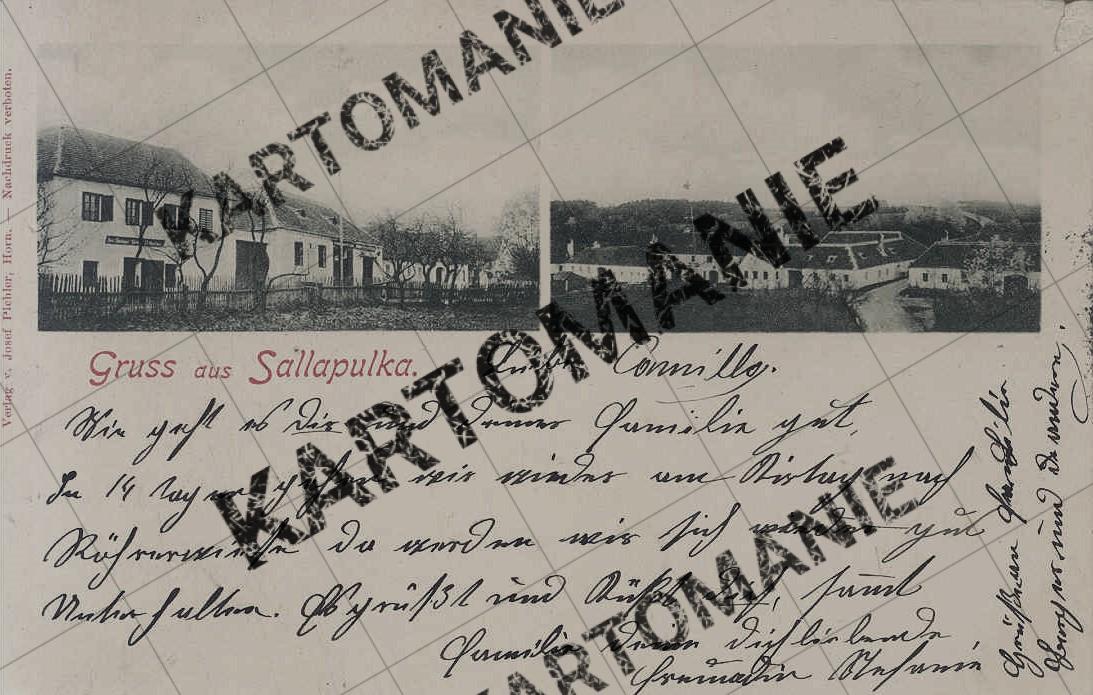 Verlag v. Josef Pichler, Horn. — Nachdruck verboten.
Gruss aus Sallapulka.
Liebe Camilla.
Wie geht es dir und deiner Familie gut,
In 14 tagen gehen wir wieder am Kirtag nach
Röhrerwiese da werden wir sich wieder gut
Unterhalten. Es grüßt und Küßt dich, samt
Familie deine dichliebende
Freundin Stefanie
Grüße an
und die andern.
KARTOMANIE
KARTOMANIE
KARTOMANIE
KARTOMANIE